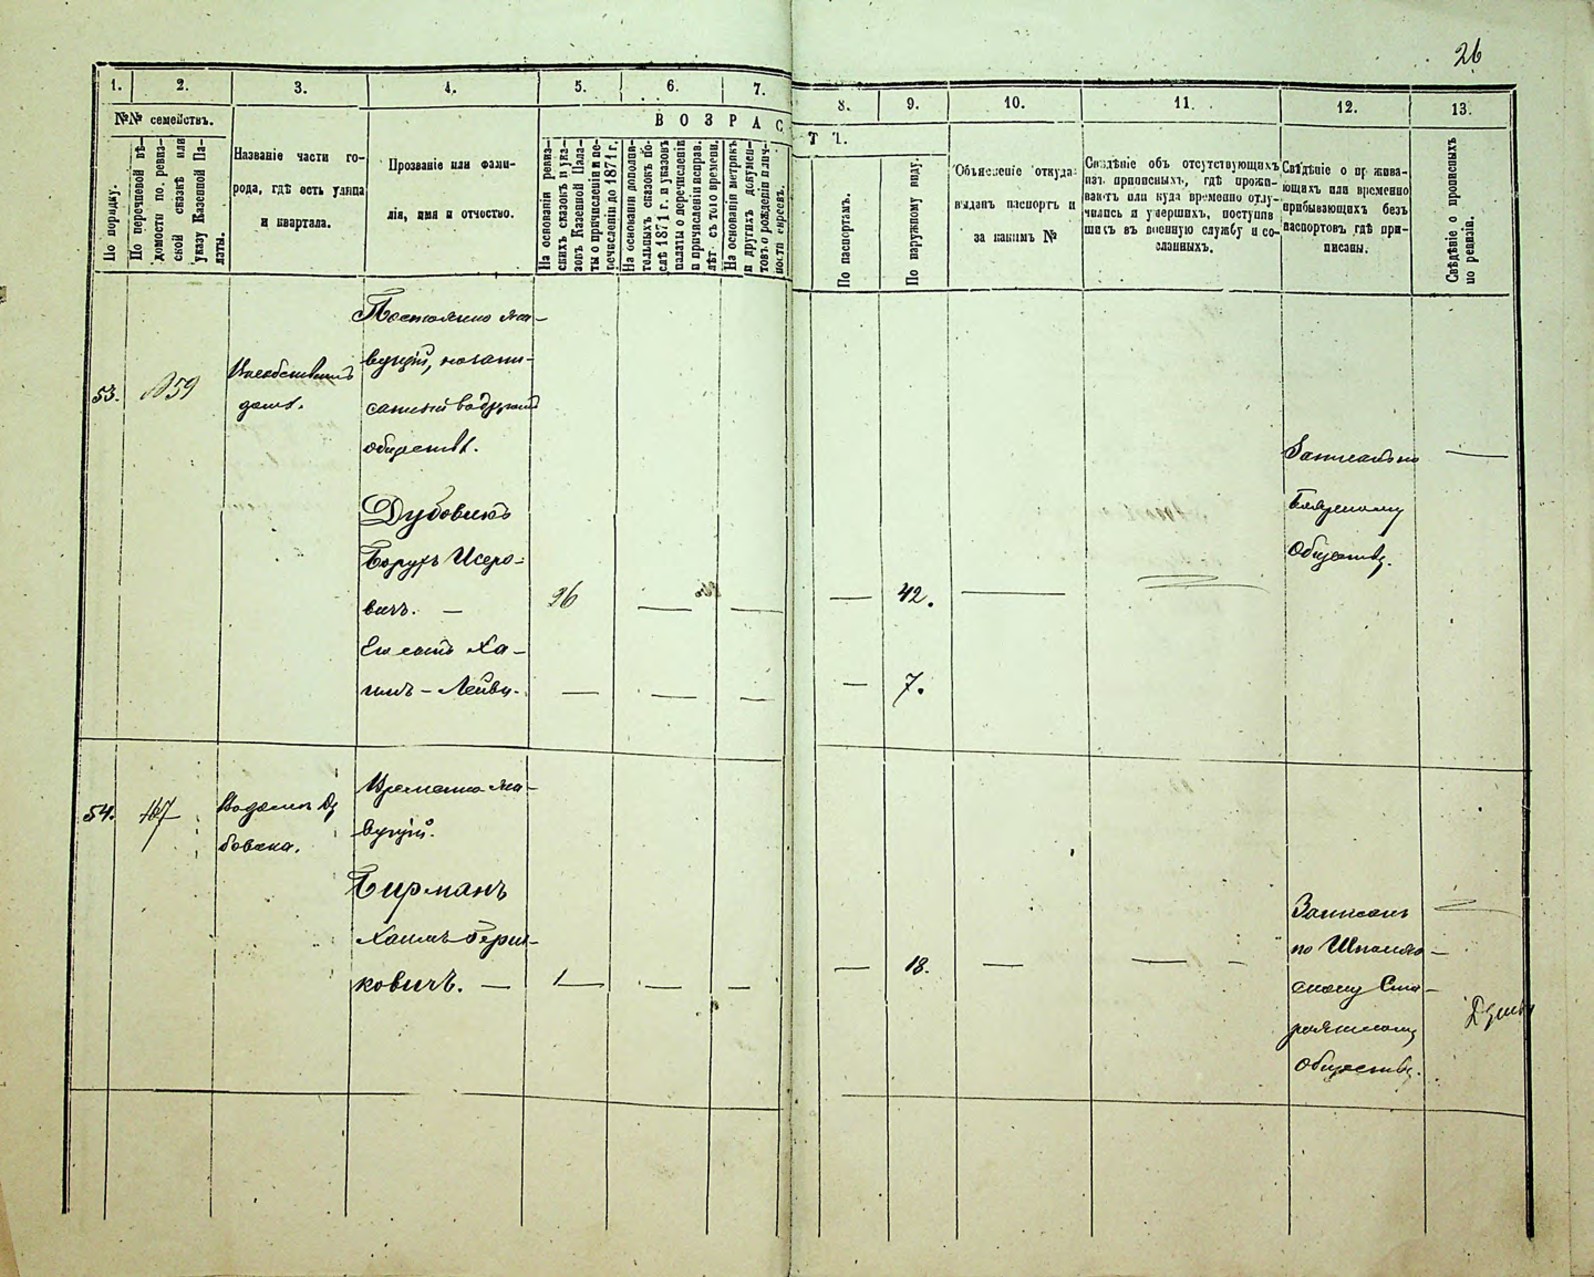 26
1. 2. 3. 4. 5. 6. 7. 8. 9. 10. 11. 12. 13.
№№ семействъ.
По порядку.
По перечневой вѣ-
домости по. ревиз-
ской сказкѣ или
указу Казенной Па-
латы.
Названіе части го-
рода, гдѣ есть улица
и квартала.
Прозваніе или фами-
лія, имя и отчество.
ВОЗРАСТЪ.
На основаніи ревиз-
скихъ сказокъ и ука-
зовъ Казенной Пала-
ты о причисленіи и пе-
речисленіи до 1871 г.
На основаніи дополни-
тельныхъ сказокъ по-
слѣ 1871 г. и указовъ
палаты о перечисленіи
и причисленіи исправ.
лѣт. съ того времени.
На основаніи метрикъ
и другихъ докумен-
товъ о рожденіи и лич-
ности евреевъ.
По паспортамъ.
По наружному виду.
Объясненіе откуда
выданъ паспортъ и
за какимъ №
Свѣдѣніе объ отсутствующихъ
изъ приписныхъ, гдѣ прожи-
ваютъ или куда временно отлу-
чились и умершихъ, поступив
шихъ въ военную службу и со-
сланныхъ.
Свѣдѣніе о прожива-
ющихъ или временно
прибывающихъ безъ
паспортовъ гдѣ при-
писаны.
Свѣдѣніе о прописныхъ
по ревизіи.
Постоянно жи-
вущій, но запи-
санный въ другомъ
обществѣ.
53. 59
домѣ.
Дубовикъ
Борухъ Исеро-
вичъ. — 26 — — — 42. — —
Его сынъ Ха-
имъ - Лейбъ. — — — — 7.
Записанъ по
Обществу. —
54.
Въ домѣ Ду
бовика.
Временно жи-
вущій.
Бирманъ
Хаимъ Герш-
ковичъ. — 1 — — — — 18. — — -
Записанъ
по
скому Ста-
Обществу.